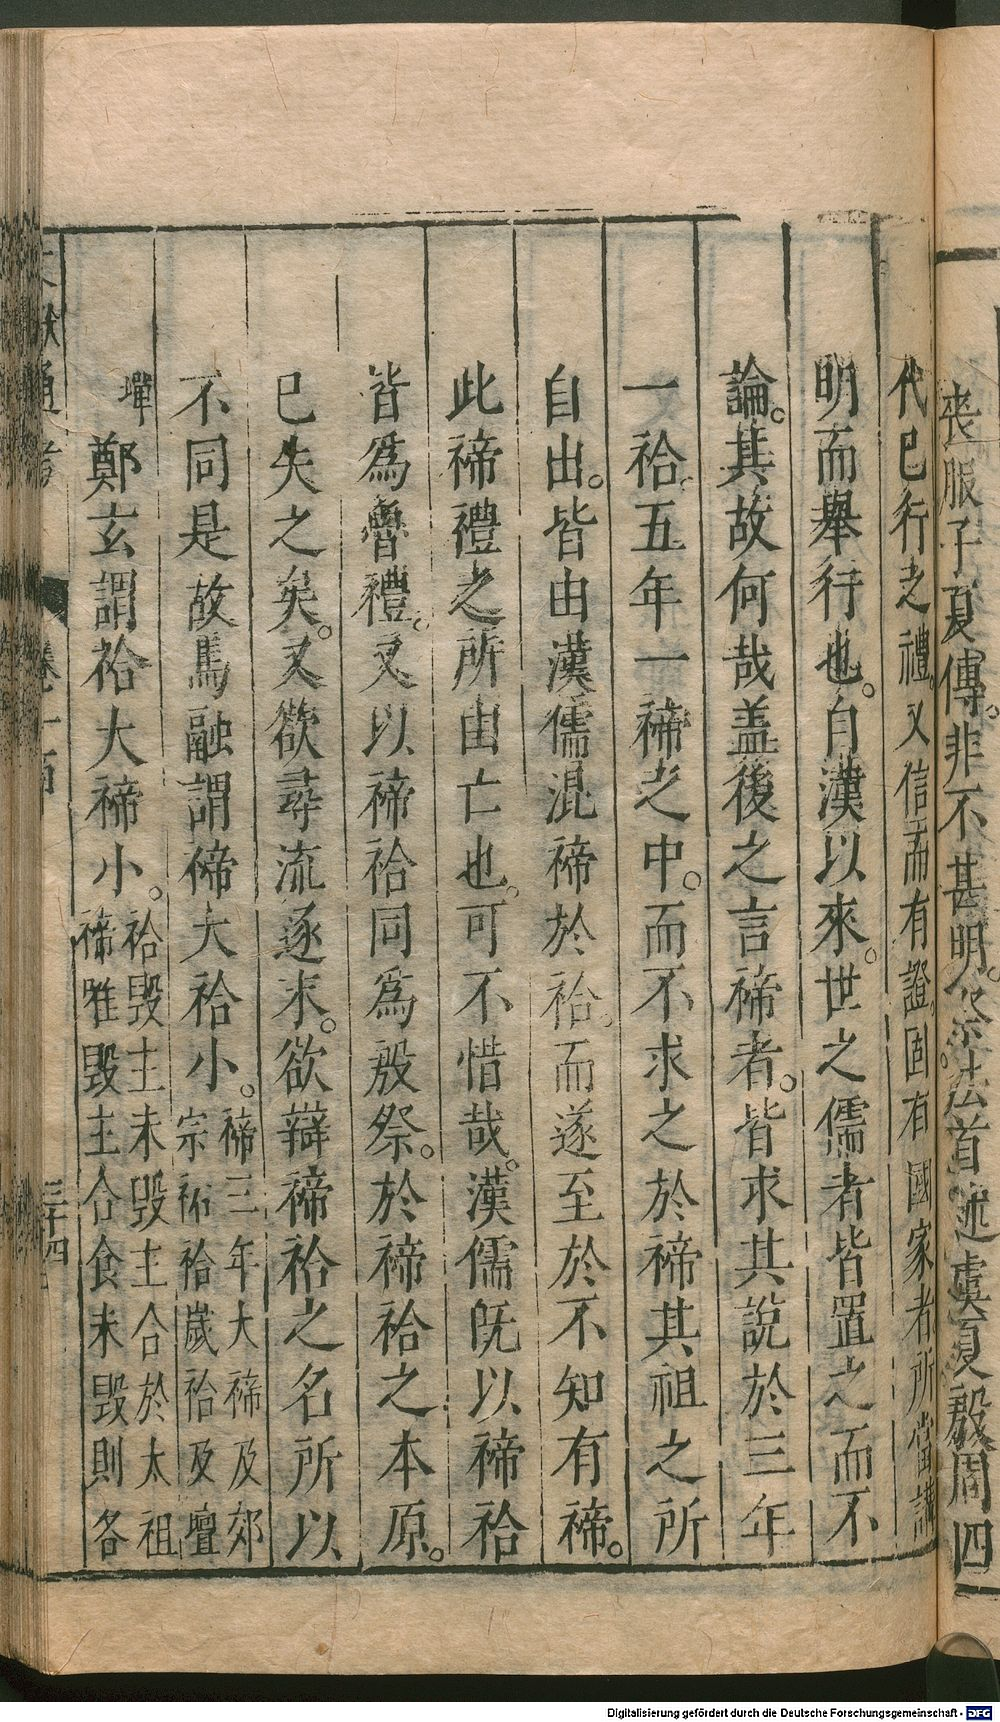 喪服子夏傳。非不甚明。祭法首述虞夏殷周四
代已行之禮。又信而有證。固有國家者所當講
明而舉行也。自漢以來。世之儒者皆置之而不
論。其故何哉盖後之言禘者。皆求其說於三年
一祫。五年一禘之中。而不求之於禘其祖之所
自出。皆由漢儒混禘於祫。而遂至於不知有禘。
此禘禮之所由亡也。可不惜哉。漢儒既以禘祫
皆爲魯禮。又以禘祫同爲殷祭。於禘祫之本原。
已失之矣。又欲尋流逐末。欲辯禘祫之名所以
不同是故馬融謂禘大祫小。禘三年大禘及郊
宗祏祫歲祫及壇
墠
鄭玄謂祫大禘小。祫毀主未毀主合於太祖
禘唯毀主合食未毀則各
文獻通考
三十四
Digitalisierung gefördert durch die Deutsche Forschungsgemeinschaft - DFG